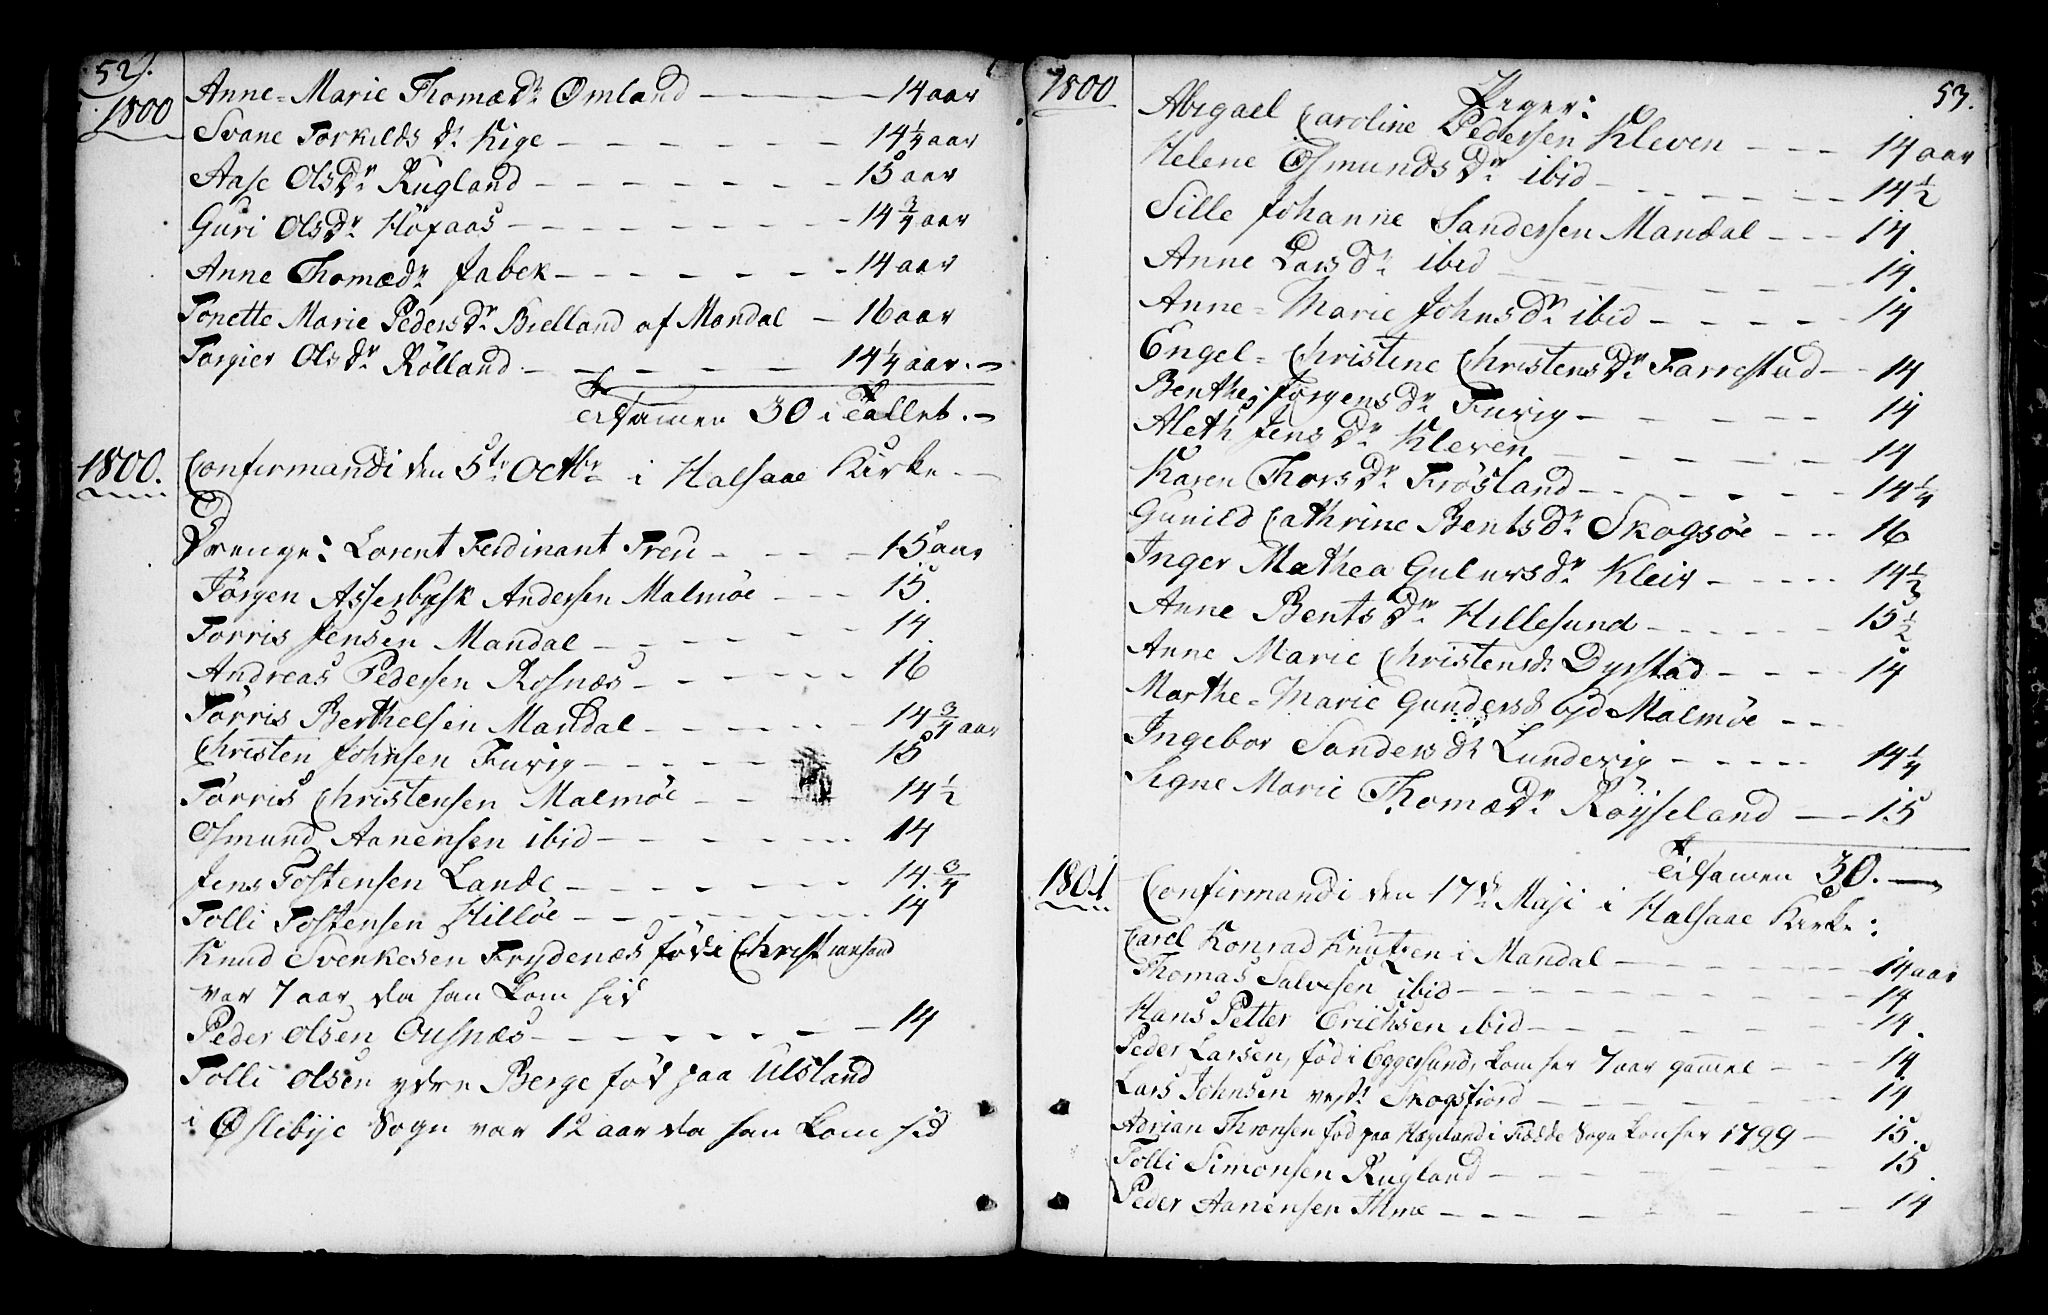 52.
1800
Anne-Marie Thomæ Dr. Omland — 14 aar
Svane Torkilds dr. Kige — 14 1/4 aar
Aase Ols Dr. Rugland — 15 aar
Guri Ols Dr. Höyaas — 14 3/4 aar
Anne Thomæ dr. Jabek — 14 aar
Tonette Marie Peders Dr. Bielland af Mandal — 16 aar
Torgier Ols dr. Rölland — 14 1/4 aar.
Tilsamen 30 i Tallet.
1800. Confirmandi den 5te Octbr. i Halsaae Kirke
Drenge: Lorent Ferdinant Treu — 15 aar
Jörgen Asserbysk Andersen Malmöe — 15.
Torris Jensen Mandal — 14.
Andreas Pedersen Rosnæs — 16
Törris Berthelsen Mandal — 14 3/4 aar
Christen Johnsen Furvig — 15
Törris Christensen Malmöe — 14 1/2
Osmund Aanensen ibid — 14
Jens Tostensen Lande — 14. 3/4
Tolli Tostensen Hillöe — 14
Knud Sverkesen Frydenæs föd i Christiansand
var 7 aar da han kom hid
Peder Olsen Ousnæs — 14
Tolli Olsen ydre Berge föd paa Ulsland
i Öslebye Sogn var 12 aar da han kom hid
1800
53.
Piger:
Abigael Caroline Pedersen Kleven — 14 aar
Helene Osmunds Dr. ibid — 14 1/2
Sille Johanne Sandersen Mandal — 14
Anne Lars Dr. ibid — 14.
Anne-Marie Johns Dr. ibid — 14
Engel-Christine Christens Dr. Farrestad — 14
Benthe Jörgens Dr. Furvig — 14
Aleth Jens Dr. Kleven — 14
Karen Thors Dr. Frösland — 14 1/4
Gunild Cathrine Bents Dr. Skogsöe — 16
Inger Mathea Gulovs dr. Kleiv — 14 1/3
Anne Bents Dr. Hillesund — 15 1/2
Anne Marie Christens dr. Dyrstad — 14
Marthe-Marie Gunders d. Malmöe
Ingebor Sanders dr. Lundevig — 14 1/4
Signe Marie Thomæ Dr. Röysseland — 15
Tilsamen 30.
1801 Confirmandi den 17de Maji i Halsaae Kirke:
Carel Konrad Knutzen i Mandal — 14 aar
Thomas Salvesen ibid — 14
Hans Petter Erichsen ibid — 14.
Peder Larsen, föd i Eggersund, kom her 7 aar gammel — 14
Lars Johnsen vest. Skogsfiord — 14
Adrian Thronsen föd paa Hægeland i Sogn kom her 1799 — 15.
Tolli Simonsen Rugland — 15.
Peder Aanensen Ihme — 14